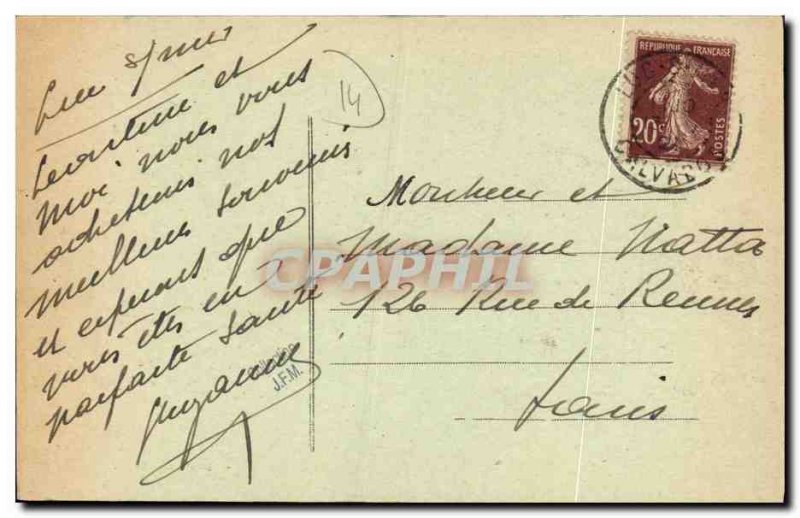 Luc s/mer
Léontine et
moi nous vous
adressons nos
meilleurs souvenirs
et espérons que
vous êtes en
parfaite santé
Suzanne
14
J.F.M.
REPUBLIQUE FRANÇAISE
20c
POSTES
CALVADOS
Monsieur et
Madame Natta
126 Rue de Rennes
Paris
CPAPHIL